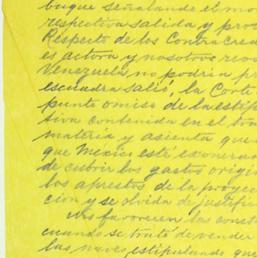 buque señalando el mo
respectiva salida y pro
Respecto de los Contracrea
es actora y nosotros reco
Venezuela no podría pr
escuadra salió, la Corte
punto omiso de la estip
tiva contenida en el tra
materia y asienta que
que México esté exonera
de cubrir los gastos origi
los aprestos de la proyec
ción y se olvida de justifi
Nos favorecen las const
cuando se trató de vender
las naves estipulando que